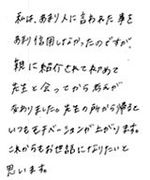 私は、あまり人に言われた事を
あまり信用しなかったのですが、
親に紹介されて初めて
先生と会ってから
なおりました。先生の所から帰ると
いつもモチベーションが上がります。
これからもお世話になりたいと
思います。